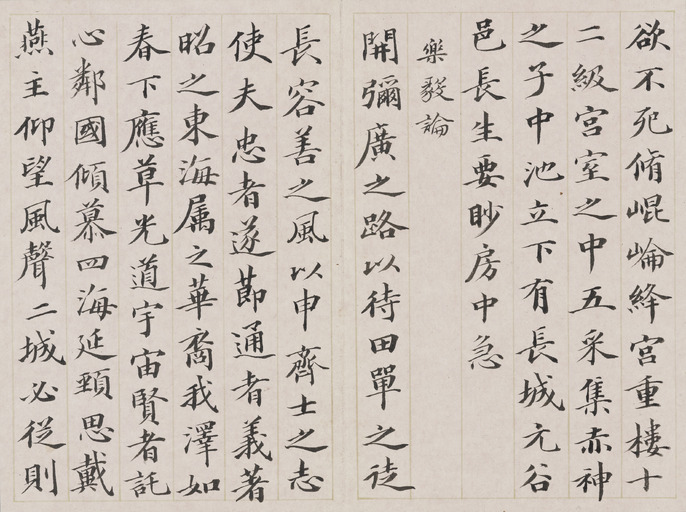 欲不死脩崐崘絳宮重樓十
二級宮室之中五采集赤神
之子中池立下有長城亢谷
邑長生要眇房中急
樂毅論
開彌廣之路以待田單之徒
長容善之風以申齊士之志
使夫忠者遂莭通者義著
昭之東海属之華裔我澤如
春下應草光道宇宙賢者託
心鄰國傾慕四海延頸思戴
燕主仰望風聲二城必從則